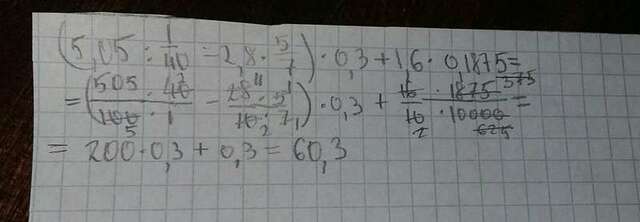 (5,05 : 1/40 - 2,8 · 5/7) · 0,3 + 1,6 · 0,1875 =
= (505 · 40/100 · 1 - 28 · 5/10 · 7) · 0,3 + 16 · 1875/10 · 10000 =
= 200 · 0,3 + 0,3 = 60,3